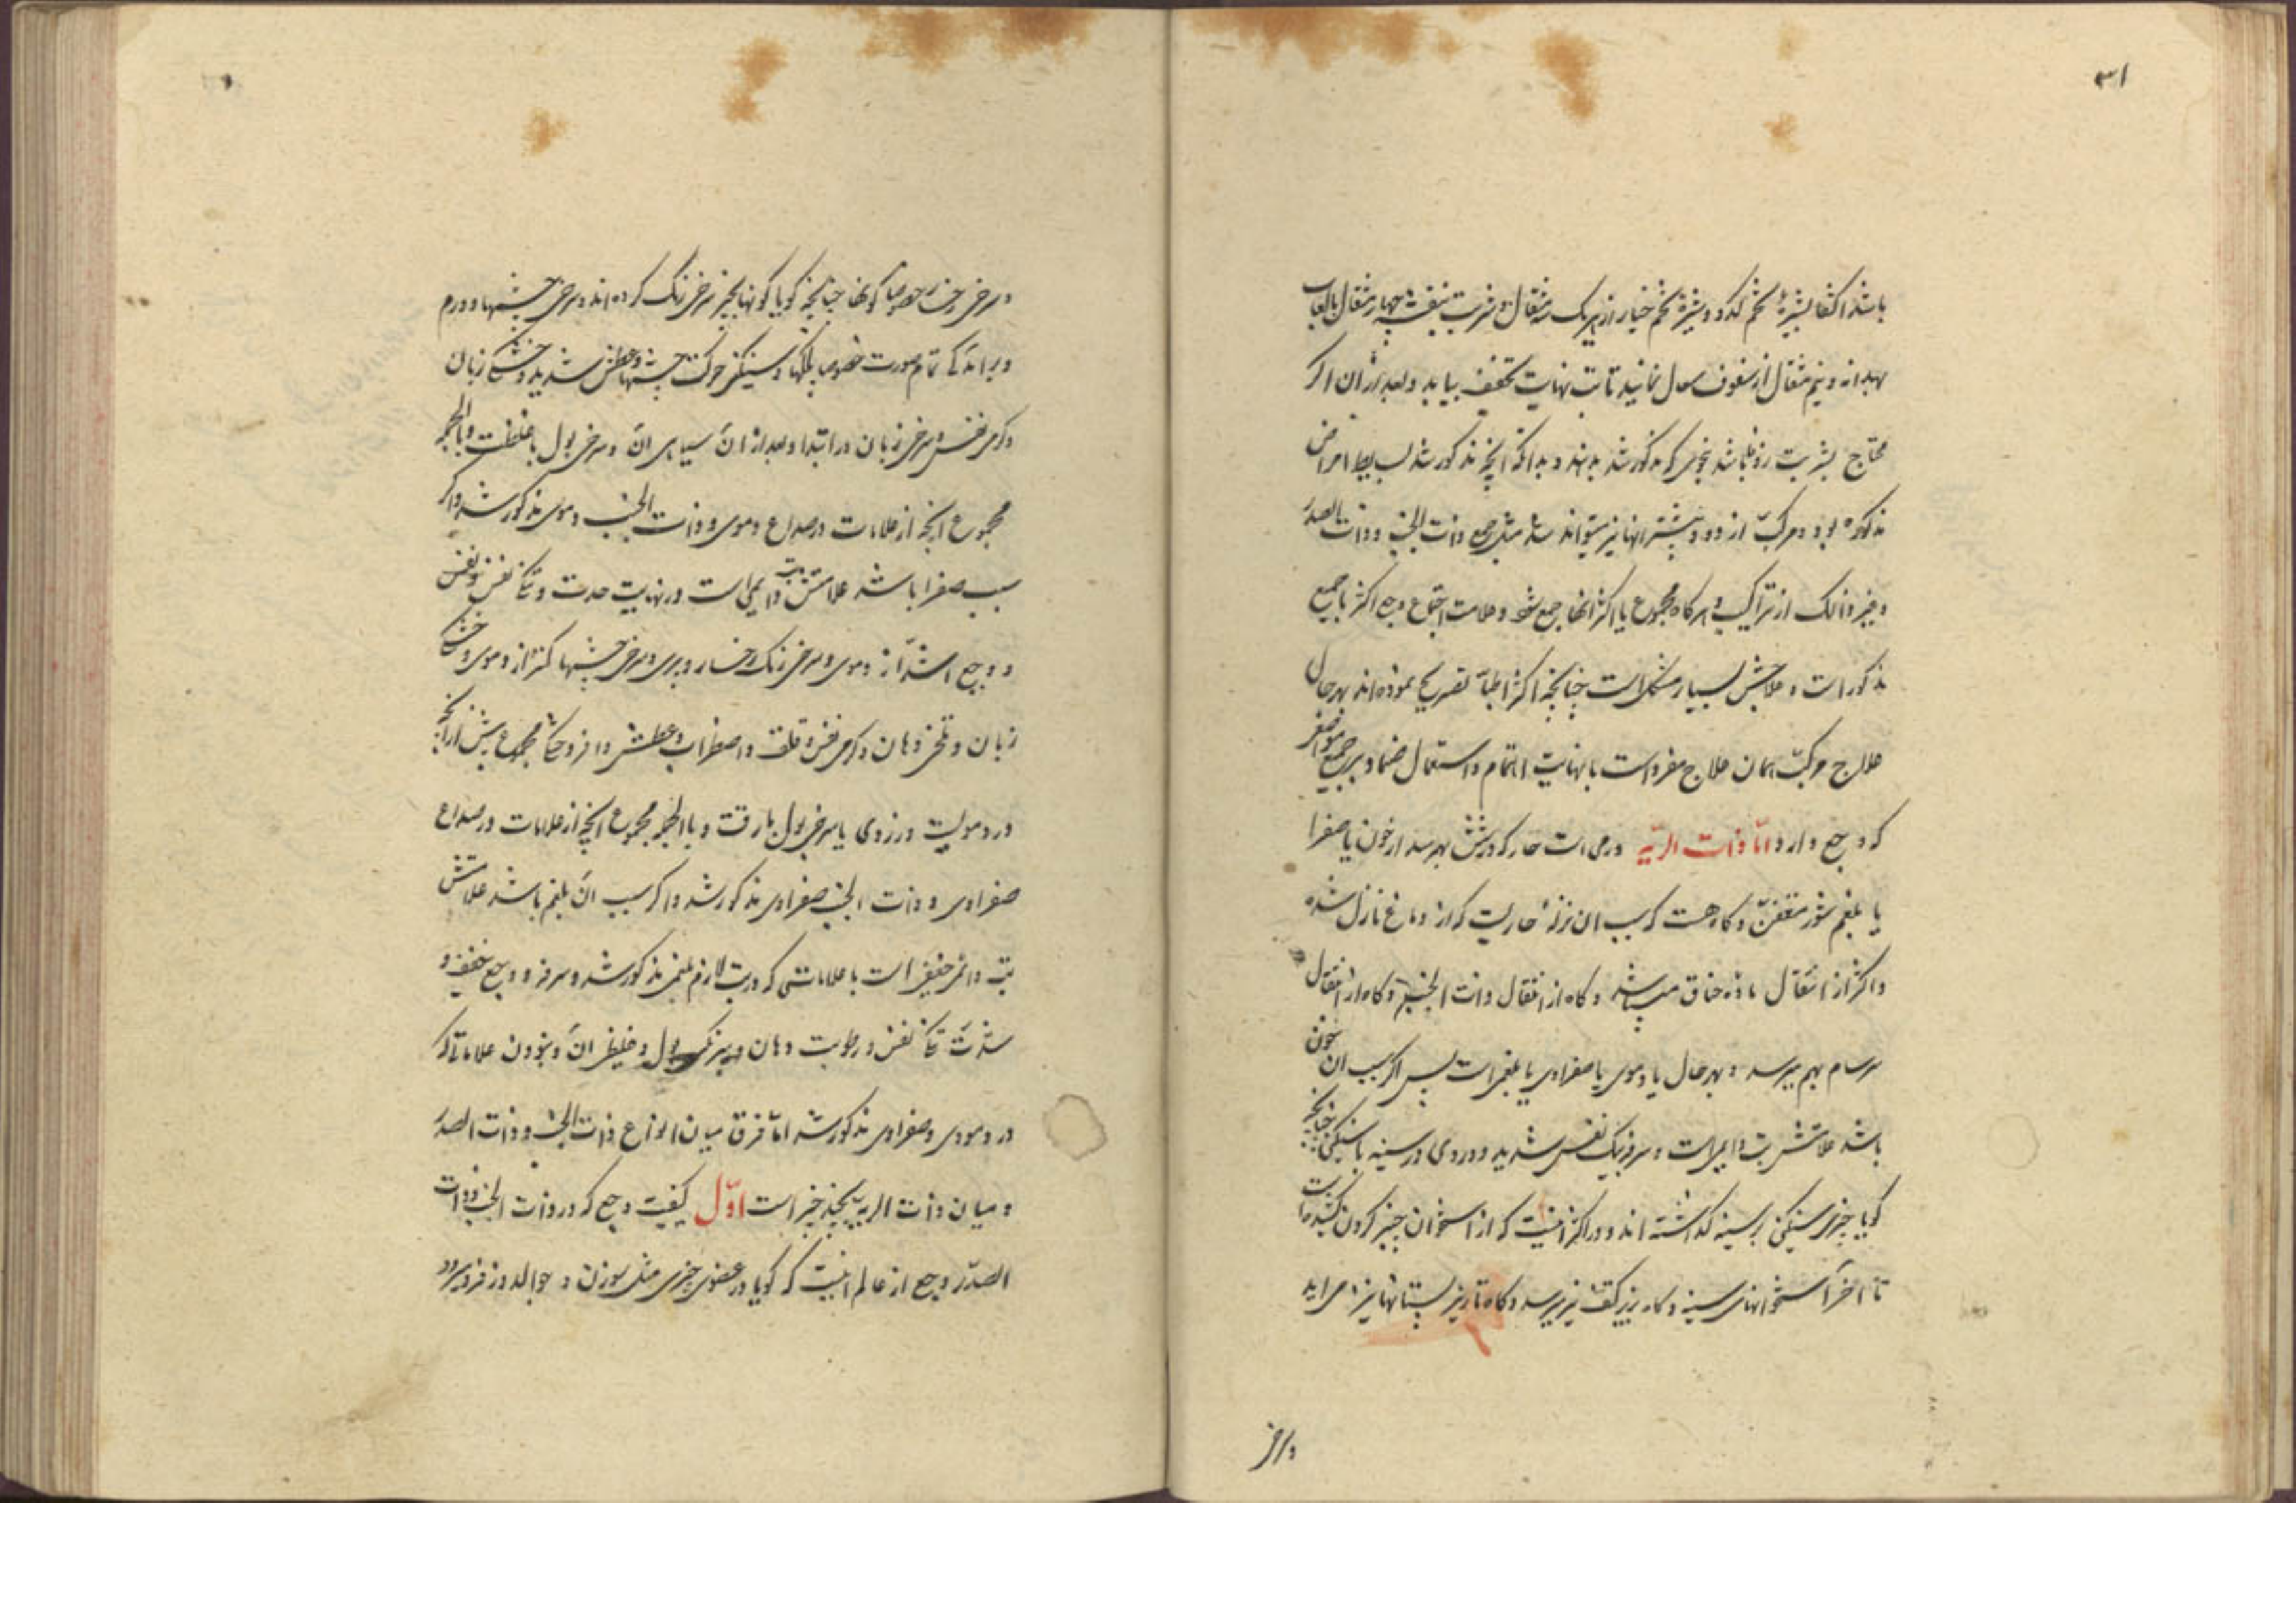 ۳۱
باشد اکتفا بشیرهٔ تخم کدو و شیرهٔ تخم خیار از هریک سه مثقال و شربت بنفشه چهار مثقال بالعاب
بهدانه و نیم مثقال از سفوف سعال نمایند تا تب نهایت تخفیف بیابد و بعد از ان اکر
محتاج بشربت زوفا باشد بنحوی که مذکور شد بدهند و بدانکه انچه مذکور شد بسایط امراض
مذکوره بود و مرکب از دو و بیشتر انها نیز میتواند شد مثل جمع ذات الجنب و ذات الصدر
و غیر ذالک از تراکیب و هرکاه مجموع یا اکثر انها جمع شود و علامت اجتماع وجع اکثر یا جمیع
مذکورات و علاجش بسیار مشکل است چنانچه اکثر اطبا تصریح نموده اند بهرحال
علاج مرکب همان علاج مفرد است با نهایت اهتمام و استعمال ضماد بر جمیع مواضع
که وجع دارد اما ذات الریه ورمی است حار که در شش بهم رسد از خون یا صفرا
یا بلغم شور متعفن و کاه هست که سبب ان نزلهٔ حاریست که از دماغ نازل شده
و اکثر از انتقال ماده خناق میباشد و کاه از انتقال ذات الجنب و کاه از انتقال
سرسام بهم میرسد و بهر حال یا دموی یا صفراوی یا بلغمی است پس اکر سبب ان خون
باشد علامتش تب دایمی است و سرفه و تنک نفس شدید و دردی در سینه با سنکینی چنانچه
کویا چیزی سنکین بر سینه کذاشته اند و در اکثر اینست که از استخوان چنبر کردن کشیده است
تا اخر استخوانهای سینه و کاه بزیر کتف نیز میرسد و کاه تا زیر پستانها نیز می اید
و سرخی
و سرخی رخسار خصوصا کونها چنانچه کویا کونها بچیز سرخی رنک کرده اند و سرخی چشمها و ورم
و برامدکی تمام صورت خصوصا پلکها و سنکینی حرکت چشمها و عطش شدید و خشکی زبان
و کرمی نفس و سرخی زبان در ابتدا و بعد از ان سیاهی ان و سرخی بول با غلظت و بالجمله
مجموع انچه از علامات در صداع دموی و ذات الجنب دموی مذکور شد و اکر
سبب صفرا باشد علامتش تب دایمی است در نهایت حدت و تنکی نفس
و وجع اشد از دموی و سرخی رنک رخسار و بری و سرخی چشمها کمتر از دموی و خشکی
زبان و تلخی دهان و کرمی نفس و قلق و اضطراب و عطش وافر و جملا مجموع بیش از انچه
در دمویست و زردی یا سرخی بول با رقت و بالجمله مجموع انچه از علامات در صداع
صفراوی و ذات الجنب صفراوی مذکور شد و اکر سبب ان بلغم باشد علامتش
تب دائمی خفیفی است با علاماتی که در تب لازم بلغمی مذکور شد و سرفه و وجع خفیف و
شدت تنکی نفس و رطوبت دهان و بول و غلیظی ان و نبودن علاماتی که
در دموی و صفراوی مذکور شد اما فرق میان انواع ذات الجنب و ذات الصدر
و میان ذات الریه بچند چیز است اول کیفیت وجع که در ذات الجنب و ذات
الصدر وجع از عالم اینست که کویا در عضوی چیزی مثل سوزن و جوالدوز فرو میرود